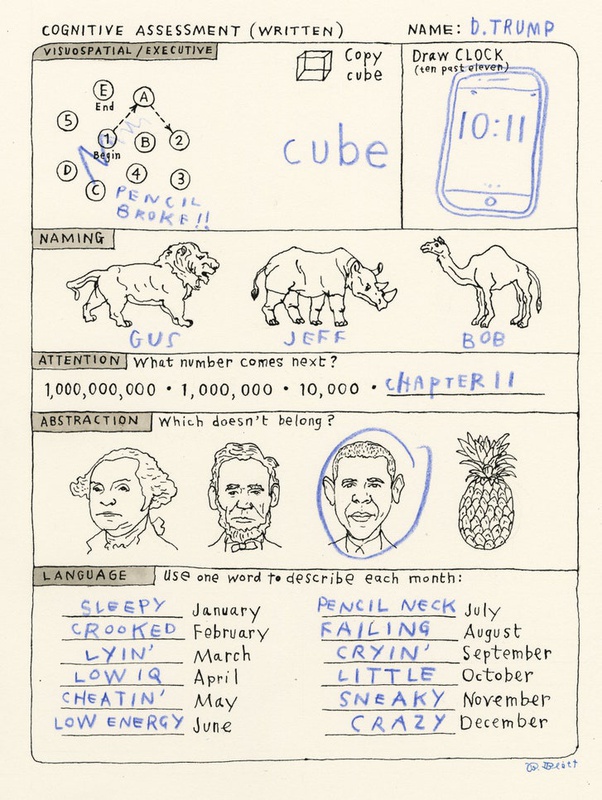 COGNITIVE ASSESSMENT (WRITTEN) NAME: D. TRUMP
VISUOSPATIAL / EXECUTIVE
Copy
cube
Draw CLOCK
(ten past eleven)
E
End
A
5
1
Begin
B
2
D
C
4
3
PENCIL
BROKE!!
cube
10:11
NAMING
GUS JEFF BOB
ATTENTION What number comes next?
1,000,000,000 • 1,000,000 • 10,000 • CHAPTER 11
ABSTRACTION Which doesn't belong?
LANGUAGE Use one word to describe each month:
SLEEPY January PENCIL NECK July
CROOKED February FAILING August
LYIN' March CRYIN' September
LOW IQ April LITTLE October
CHEATIN' May SNEAKY November
LOW ENERGY June CRAZY December